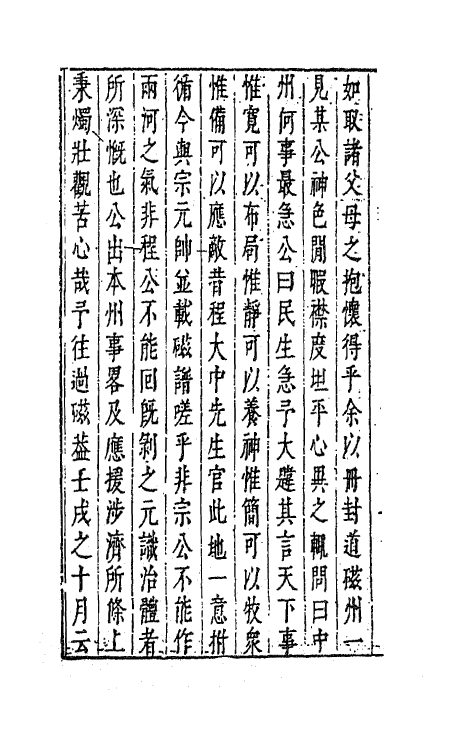 如取諸父母之抱懷得乎余以冊封道磁州一
見某公神色閒暇襟度坦平心異之輒問曰中
州何事最急公曰民生急予大韙其言天下事
惟寬可以布局惟靜可以養神惟簡可以牧衆
惟備可以應敵昔程大中先生官此地一意拊
循今與宗元帥並載磁譜嗟乎非宗公不能作
兩河之氣非程公不能回旣剝之元識治體者
所深慨也公出本州事畧及應援涉濟所條上
秉燭壯觀苦心哉予往過磁葢壬戌之十月云